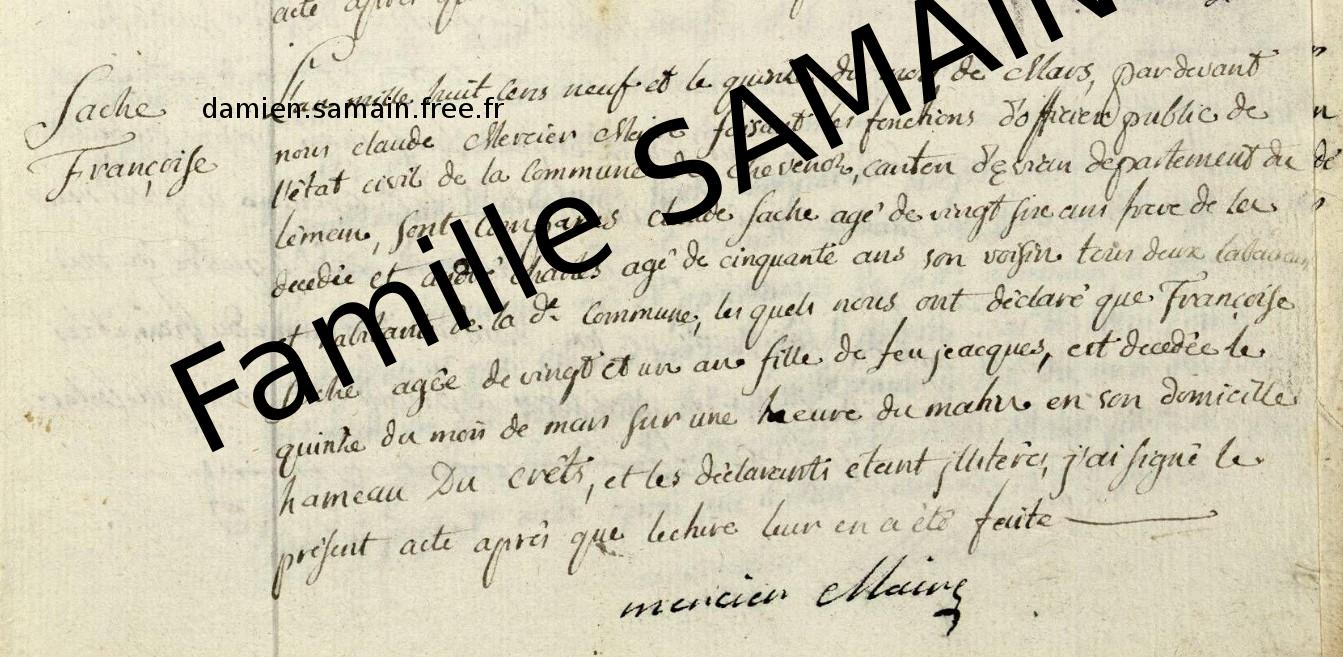 acte après
Sache
Françoise
damien.samain.free.fr
Famille SAMAIN
L'an mille huit cens neuf et le quinze du mois de Mars, pardevant
nous claude Mercier Maire faisant les fonctions d'officier public de
l'état civil de la Commune de chevenoz, canton d'Evian département du
lémem, sont comparus claude Sache agé de vingt six ans frere de la
decedée et andré charles agé de cinquante ans son voisin tous deux labour
et abitants de la de Commune, les quels nous ont déclaré que Françoise
Sache agée de vingt et un an fille de feu jeacques, est decedée le
quinze du mois de mars sur une heure du matin en son domicille
hameau Du crêts, et les déclarants etant jllitérés, j'ai signé le
présent acte après que lecture leur en a été faite
mercier Maire